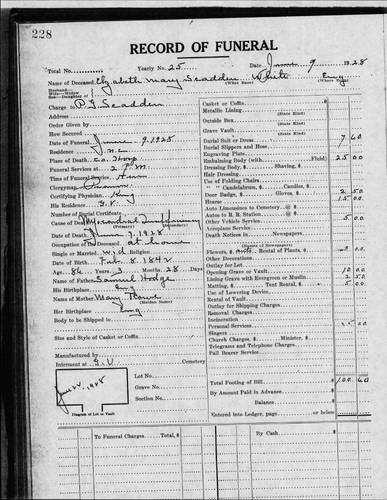 228
RECORD OF FUNERAL
Total No. Yearly No. 25 Date June 9, 1928
Name of Deceased Elizabeth Mary Scadden White Eng
(What Race) (Where Born)
Husband—
Wife—Widow
Son—Daughter of
Charge to P. J. Scadden
Address
Order Given by
How Secured
Date of Funeral June 9, 1928
Residence
Place of Death Co. Hosp
Funeral Services at 2 P.M.
Time of Funeral Service
Clergyman
Certifying Physician
His Residence G. V.
Number of Burial Certificate
Cause of Death Myocardial Insufficiency
(Primary) (Secondary)
Date of Death June 7, 1928
Occupation of the Deceased at home
Single or Married wid Religion
Date of Birth Feb. 8. 1842
Aged 86 Years 3 Months 28 Days
Name of Father Samuel Hodge
His Birthplace Eng
Name of Mother Mary Rowe
(Maiden Name)
Her Birthplace Eng
Body to be Shipped to
Size and Style of Casket or Coffin
Manufactured by
Interment at G. V. Cemetery
Lot No.
Grave No.
Section No.
Diagram of Lot or Vault
Casket or Coffin
Metallic Lining
(State Kind)
Outside Box
(State Kind)
Grave Vault
(State Kind)
Burial Suit or Dress 7 60
Burial Slippers and Hose
Engraving Plate
Embalming Body (with Fluid) 25 00
Dressing Body, $ Shaving, $
Hair Dressing
Use of Folding Chairs
" " Candelabrum, $ Candles, $
Door Badge, $ Gloves, $ 2 50
Hearse 15 00
Auto Limousines to Cemetery @ $
Autos to R. R. Station @ $
Other Vehicle Service 5 00
Aeroplane Service
Death Notices in Newspapers
(Names of Newspapers)
Flowers, $ Rental of Plants, $
Other Decorations
Outlay for Lot
Opening Grave or Vault 10 00
Lining Grave with Evergreen or Muslin 2 50
Matting, $ Tent Rental, $ 5 00
Use of Lowering Device
Rental of Vault
Outlay for Shipping Charges
Removal Charges
Incineration
Personal Services 25 00
Singers
Church Charges, $ Minister, $
Telegrams and Telephone Charges
Pall Bearer Service
Total Footing of Bill $ 100 60
By Amount Paid in Advance
Balance
Entered into Ledger, page or below
To Funeral Charges, Total, $ By Cash $